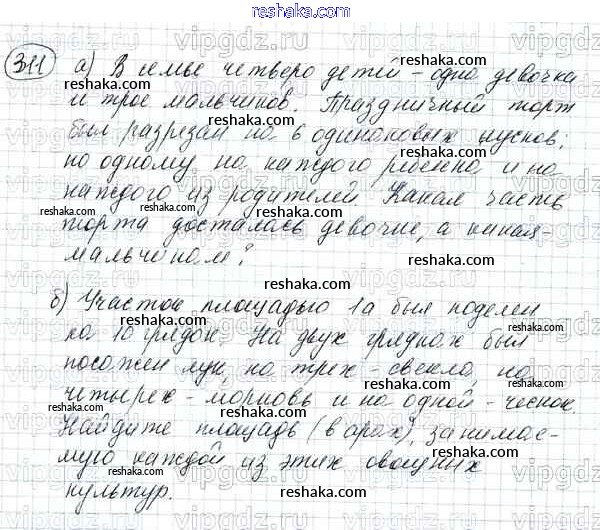 reshaka.com
311 а) В семье четверо детей – одна девочка
и трое мальчиков. Праздничный торт
был разрезан на 6 одинаковых кусков:
по одному на каждого ребенка и на
каждого из родителей. Какая часть
торта досталась девочке, а какая –
мальчикам?
б) Участок площадью 1а был поделен
на 10 грядок. На двух грядках был
посажен лук, на трех – свекла, на
четырех – морковь и на одной – чеснок.
Найдите площадь (в арах), занимае-
мую каждой из этих овощных
культур.